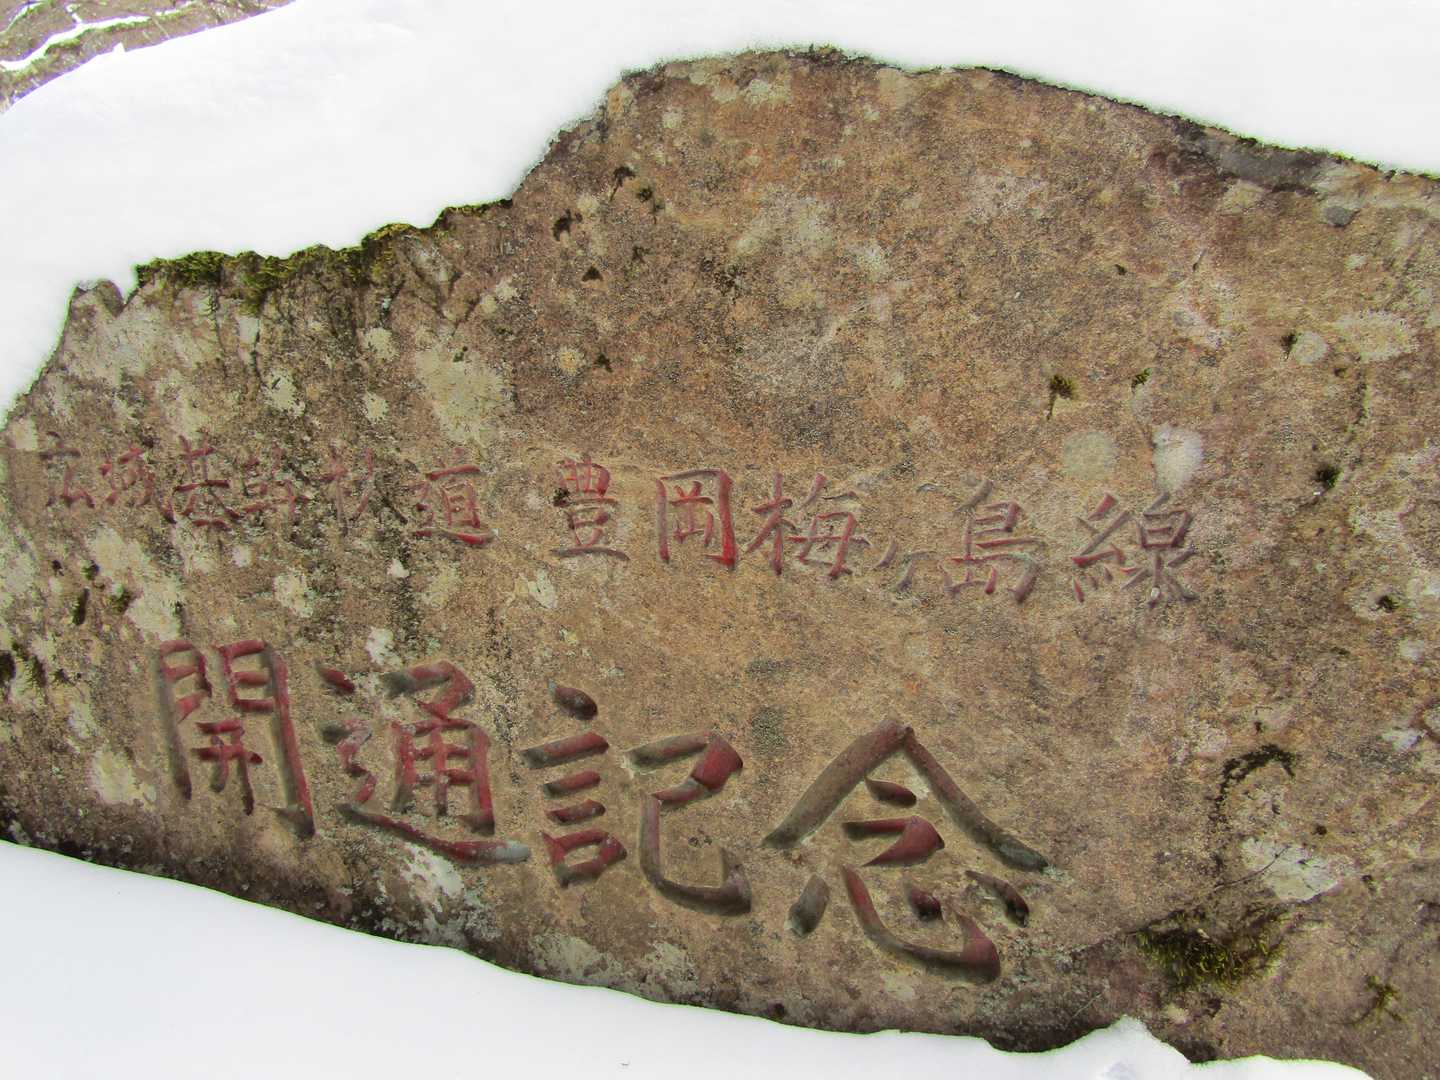 広域基幹林道 豊岡梅ヶ島線
開通記念